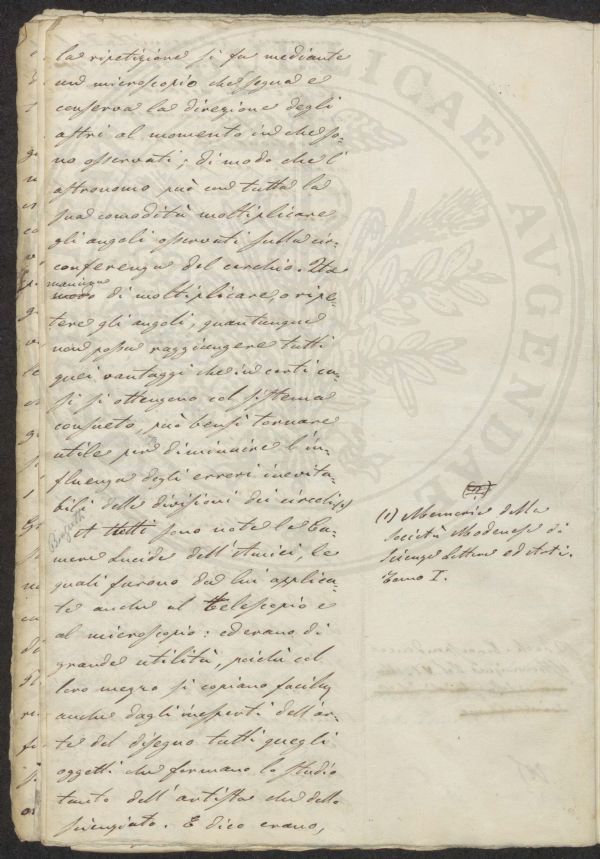 la ripetizione si fa mediante
un microscopio che segna e
conserva la direzione degli
astri al momento in che so-
no osservati; di modo che l'
astronomo può con tutta la
sua comodità moltiplicare
gli angoli osservati sulla cir-
conferenza del cerchio. Una
maniera
modo di moltiplicare, o ripe-
tere gli angoli, quantunque
non possa raggiungere tutti
quei vantaggi che in certi ca-
si si ottengono col sistema
consueto, può bensì tornare
utile per diminuire l'in-
fluenza degli errori inevita-
bili delle divisioni dei circoli (1)
A tutti sono note le Ca-
mere Lucide dell'Amici, le
quali furono da lui applica-
te anche al Telescopio e
al microscopio: ed erano di
grande utilità, poichè col
loro mezzo si copiano facilm
anche dagli inesperti dell'ar-
te del disegno tutti quegli
oggetti che formano lo studio
tanto dell'artista che dello
scienziato. E dico erano,
(1) Memorie della
Società Modenese di
Scienze Lettere ed Arti.
Tomo I.
PUBLICAE AVGENDAE